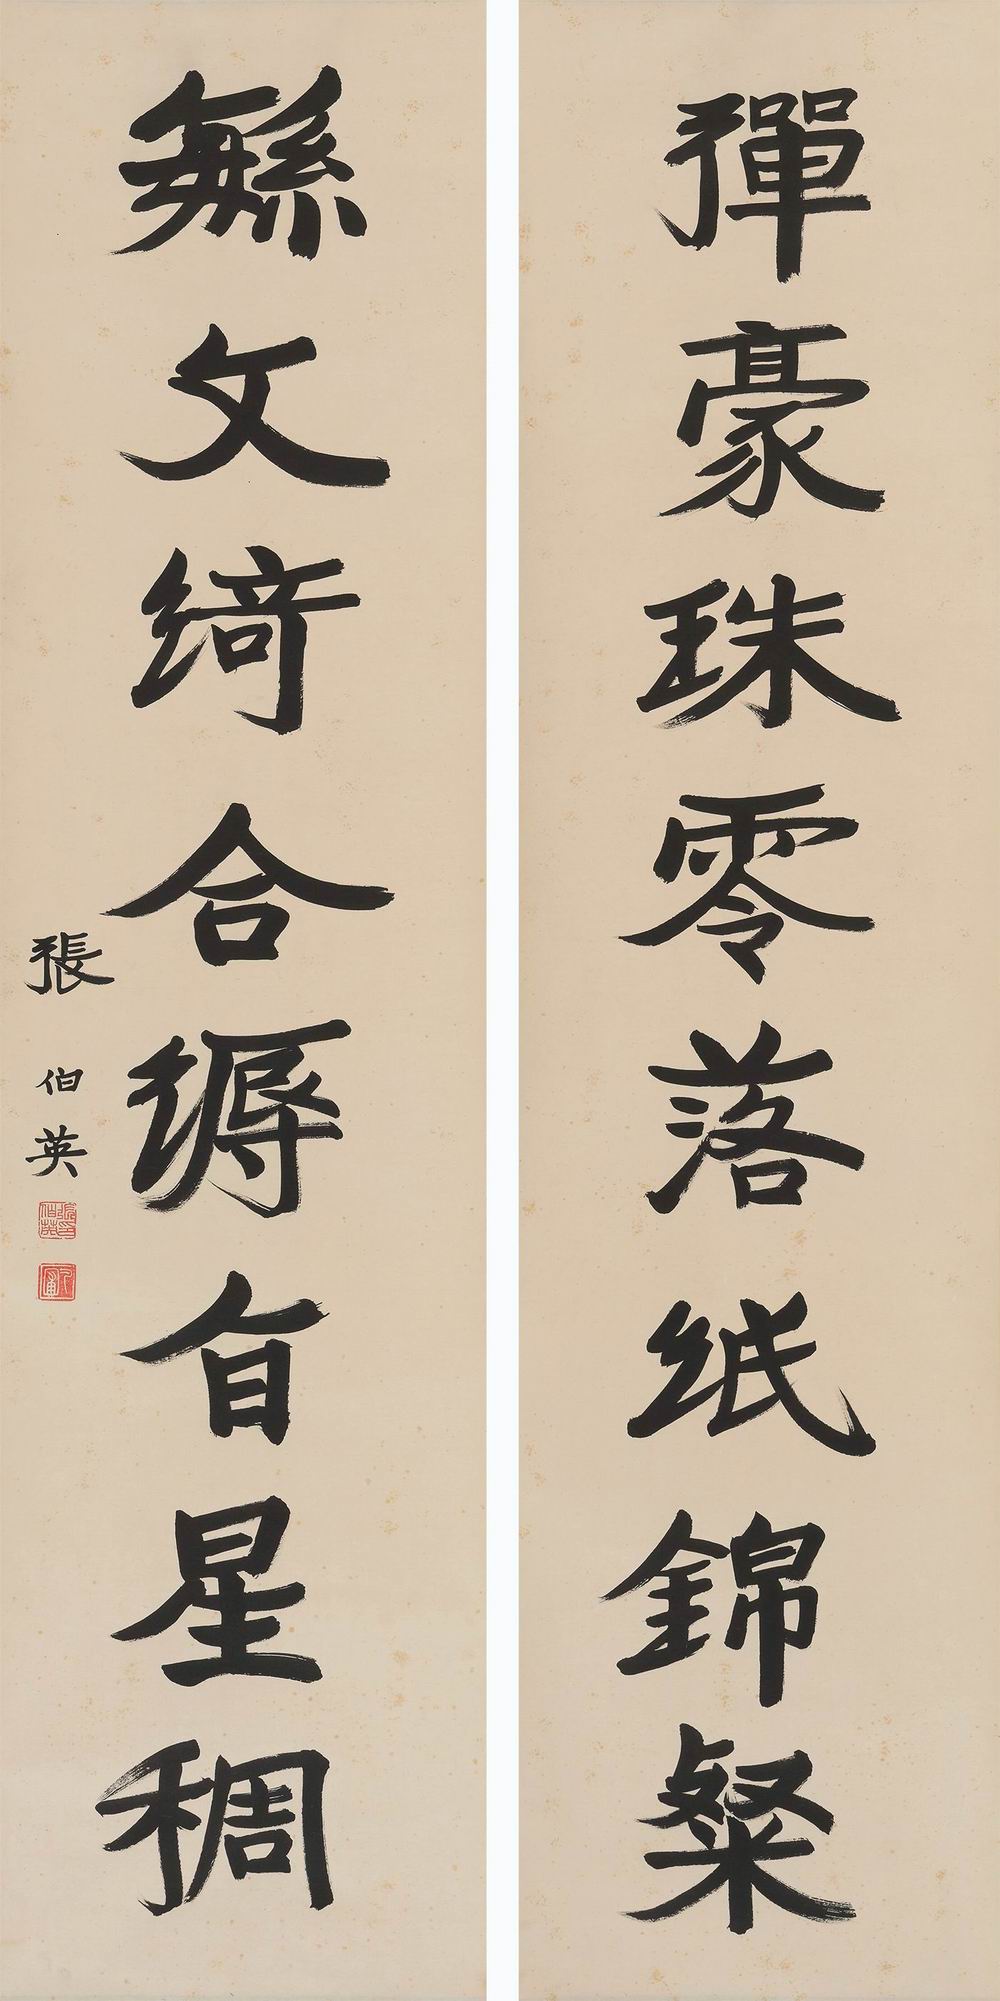 彈豪珠零落紙錦粲
緐文綺合縟旨星稠
張伯英
張伯英印